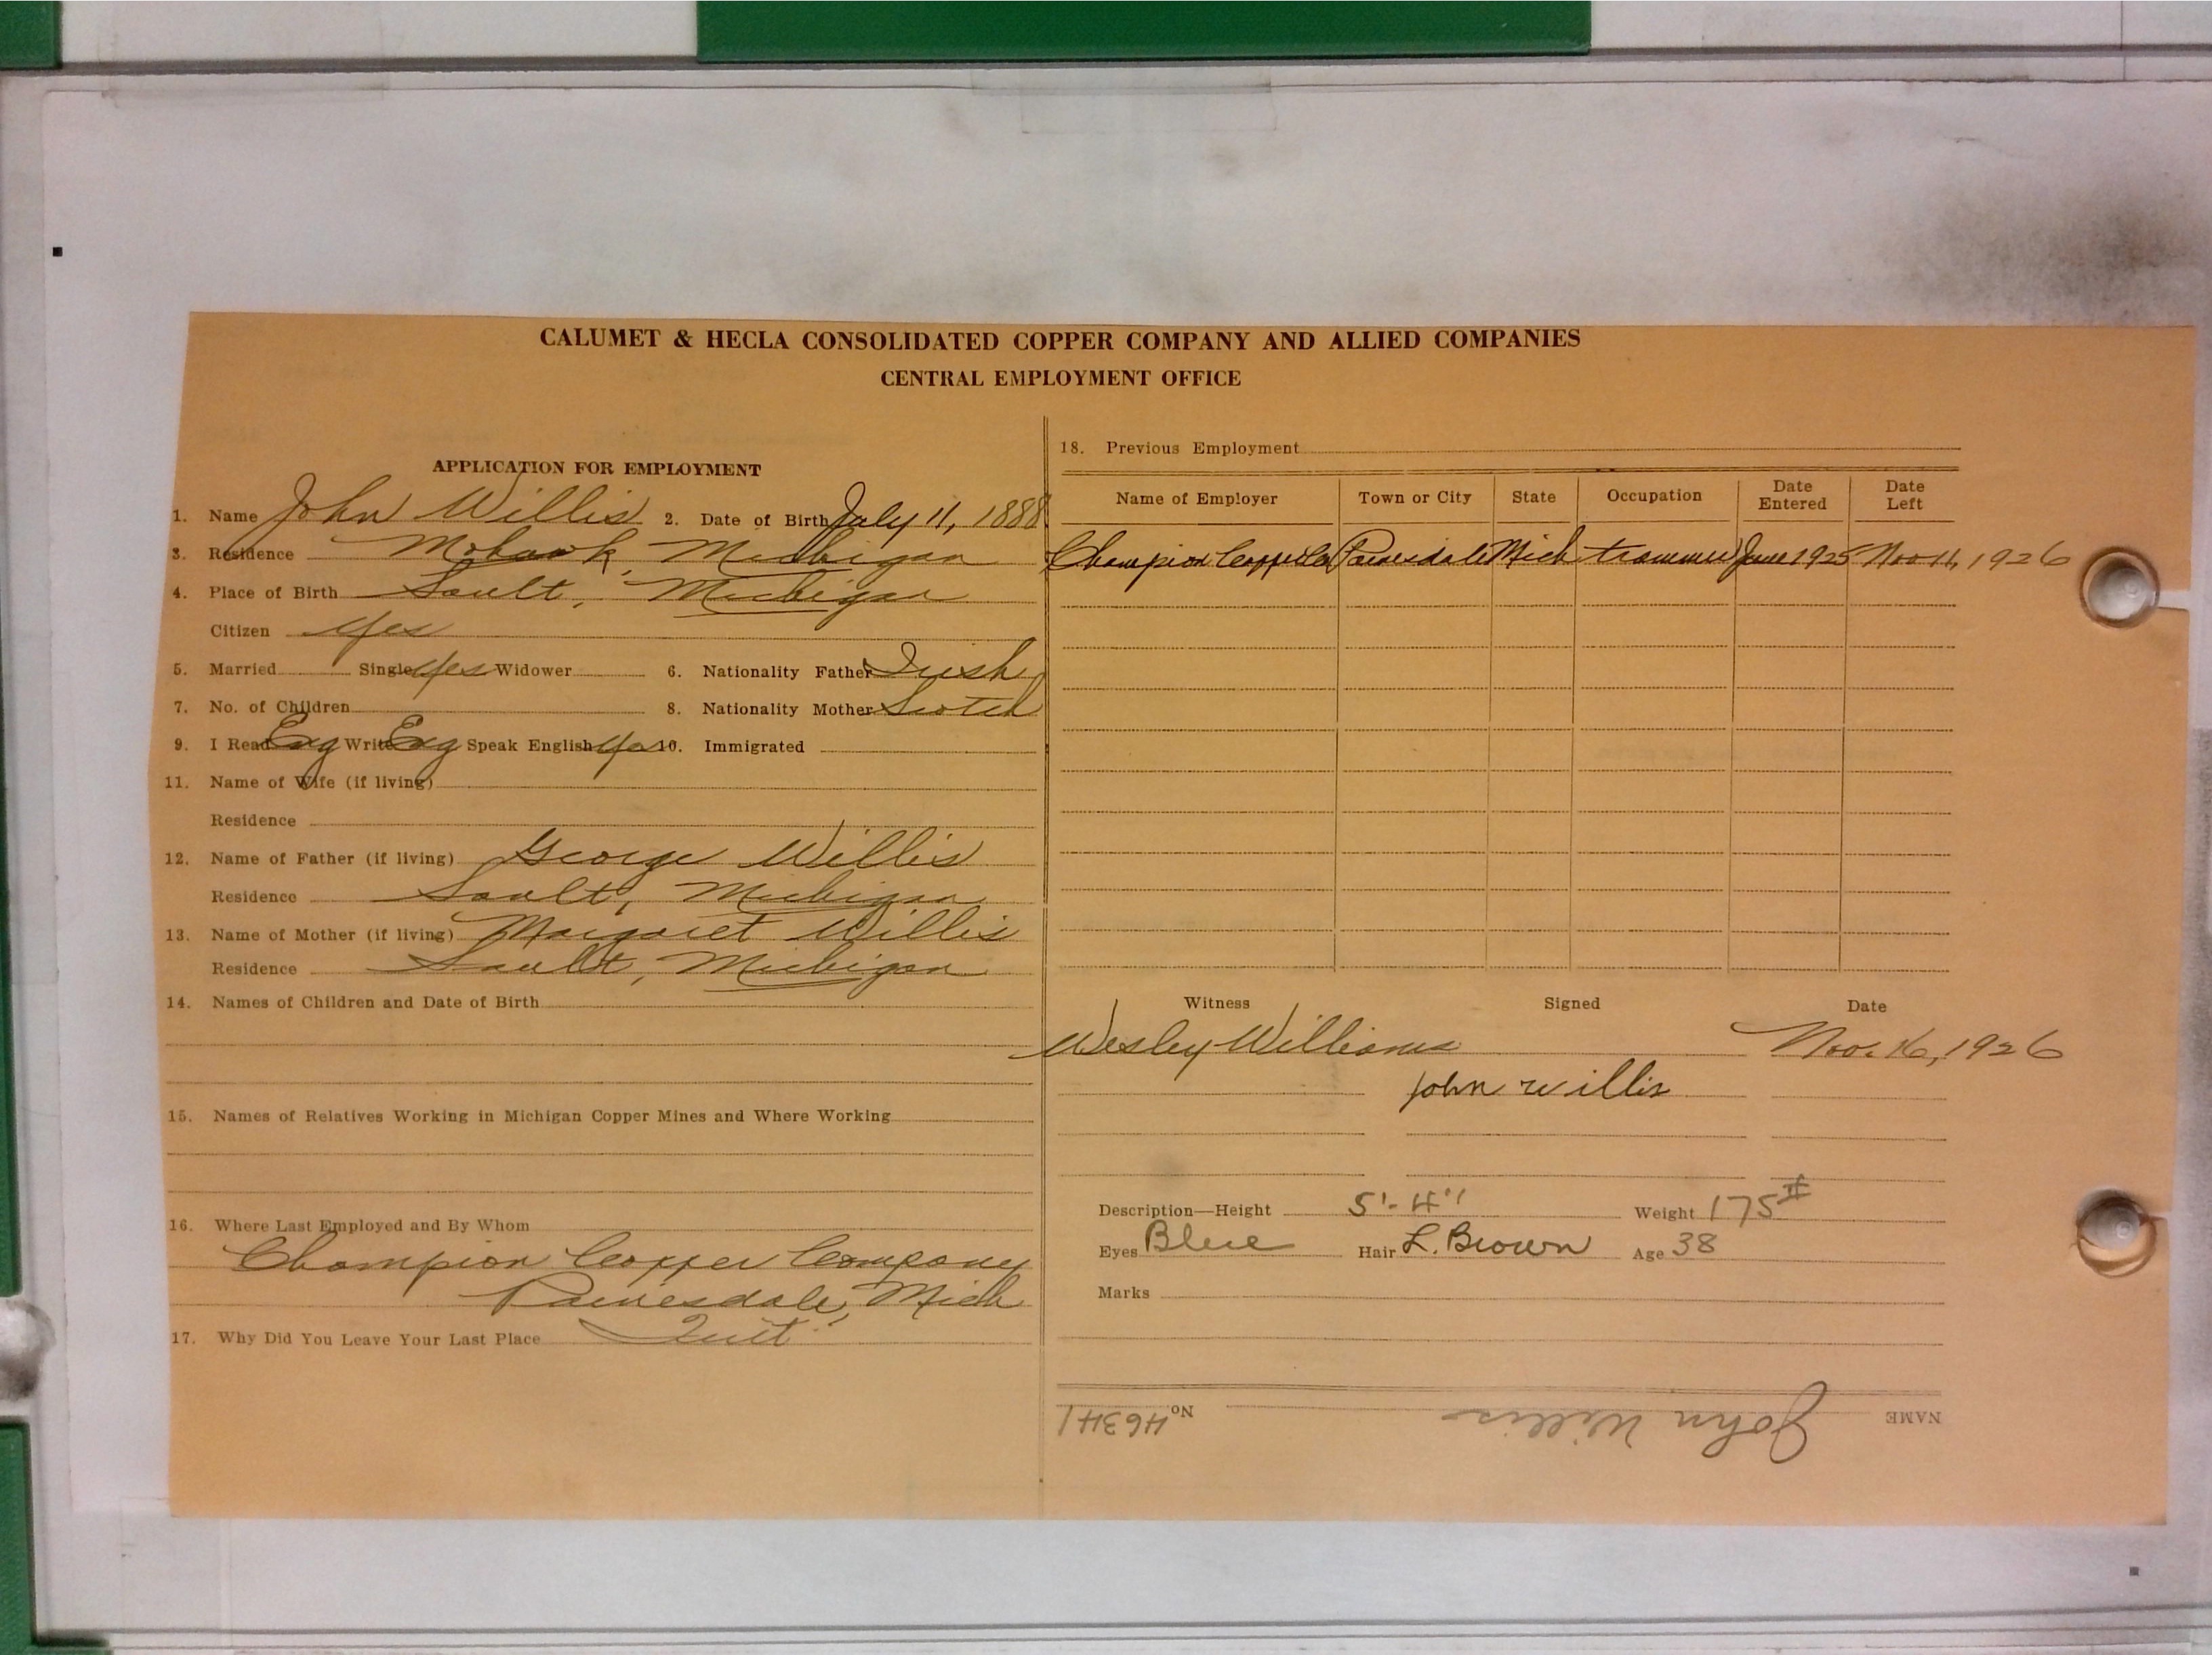 CALUMET & HECLA CONSOLIDATED COPPER COMPANY AND ALLIED COMPANIES
CENTRAL EMPLOYMENT OFFICE
APPLICATION FOR EMPLOYMENT
1. Name John Willis 2. Date of Birth July 11, 1888
3. Residence Mohawk, Michigan
4. Place of Birth Sault, Michigan
Citizen Yes
5. Married Single Yes Widower 6. Nationality Father Irish
7. No. of Children 8. Nationality Mother Scotch
9. I Read Eng Write Eng Speak English Yes 10. Immigrated
11. Name of Wife (if living)
Residence
12. Name of Father (if living) George Willis
Residence Sault, Michigan
13. Name of Mother (if living) Margaret Willis
Residence Sault, Michigan
14. Names of Children and Date of Birth
15. Names of Relatives Working in Michigan Copper Mines and Where Working
16. Where Last Employed and By Whom
Champion Copper Company
Painesdale, Mich
17. Why Did You Leave Your Last Place Quit
18. Previous Employment
Name of Employer Town or City State Occupation Date Entered Date Left
Champion Copper Co Painesdale Mich trammer June 1925 Nov 11, 1926
Witness Signed Date
Wesley Williams Nov. 16, 1926
John Willis
Description—Height 5'-4" Weight 175#
Eyes Blue Hair L. Brown Age 38
Marks
NAME John Willis No. 46341